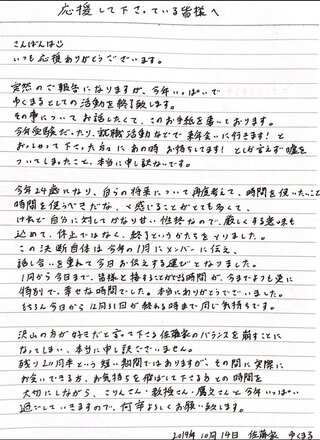 応援して下さっている皆様へ
こんばんは☺
いつも応援ありがとうございます。
突然のご報告になりますが、今年いっぱいで
ゆくまるとしての活動を終了致します。
その事についてお話したくて、このお手紙を書いております。
今年受験だったり、就職活動などで来年会いに行きます！と
おっしゃって下さった方々にあの時お待ちしてます！としか言えず嘘を
ついてしまったこと、本当に申し訳ないです。
今年24歳になり、自分の将来について再度考えて、時間を使いたいこと
時間を使うべきだな、と感じることがとても多くて、
けれど自分に対してかなり甘い性格なので、厳しくする意味も
込めて、休止ではなく、終了というかたちをとりました。
この決断自体は今年の1月にメンバーに伝え、
話し合いを重ねて今日お伝えする運びとなりました。
1月から今日まで、皆様と接することが出来る時間が、今までよりも更に
特別で、幸せな時間でした。本当にありがとうございました。
もちろん今日から12月31日が終わる時まで同じ気持ちです。
沢山の方が好きだと言って下さる佐藤家のバランスを崩すことに
なってしまい、本当に申し訳ございません。
残り2ヵ月半という短い期間ではありますが、その間に実際に
お会いできる方、お気持ちを飛ばして下さる方との時間を
大切にしながら、こりんさん・教授さん・鷹支さんと今年いっぱい
過ごしていきますので、何卒よろしくお願い致します。
2019年10月14日 佐藤家 ゆくまる